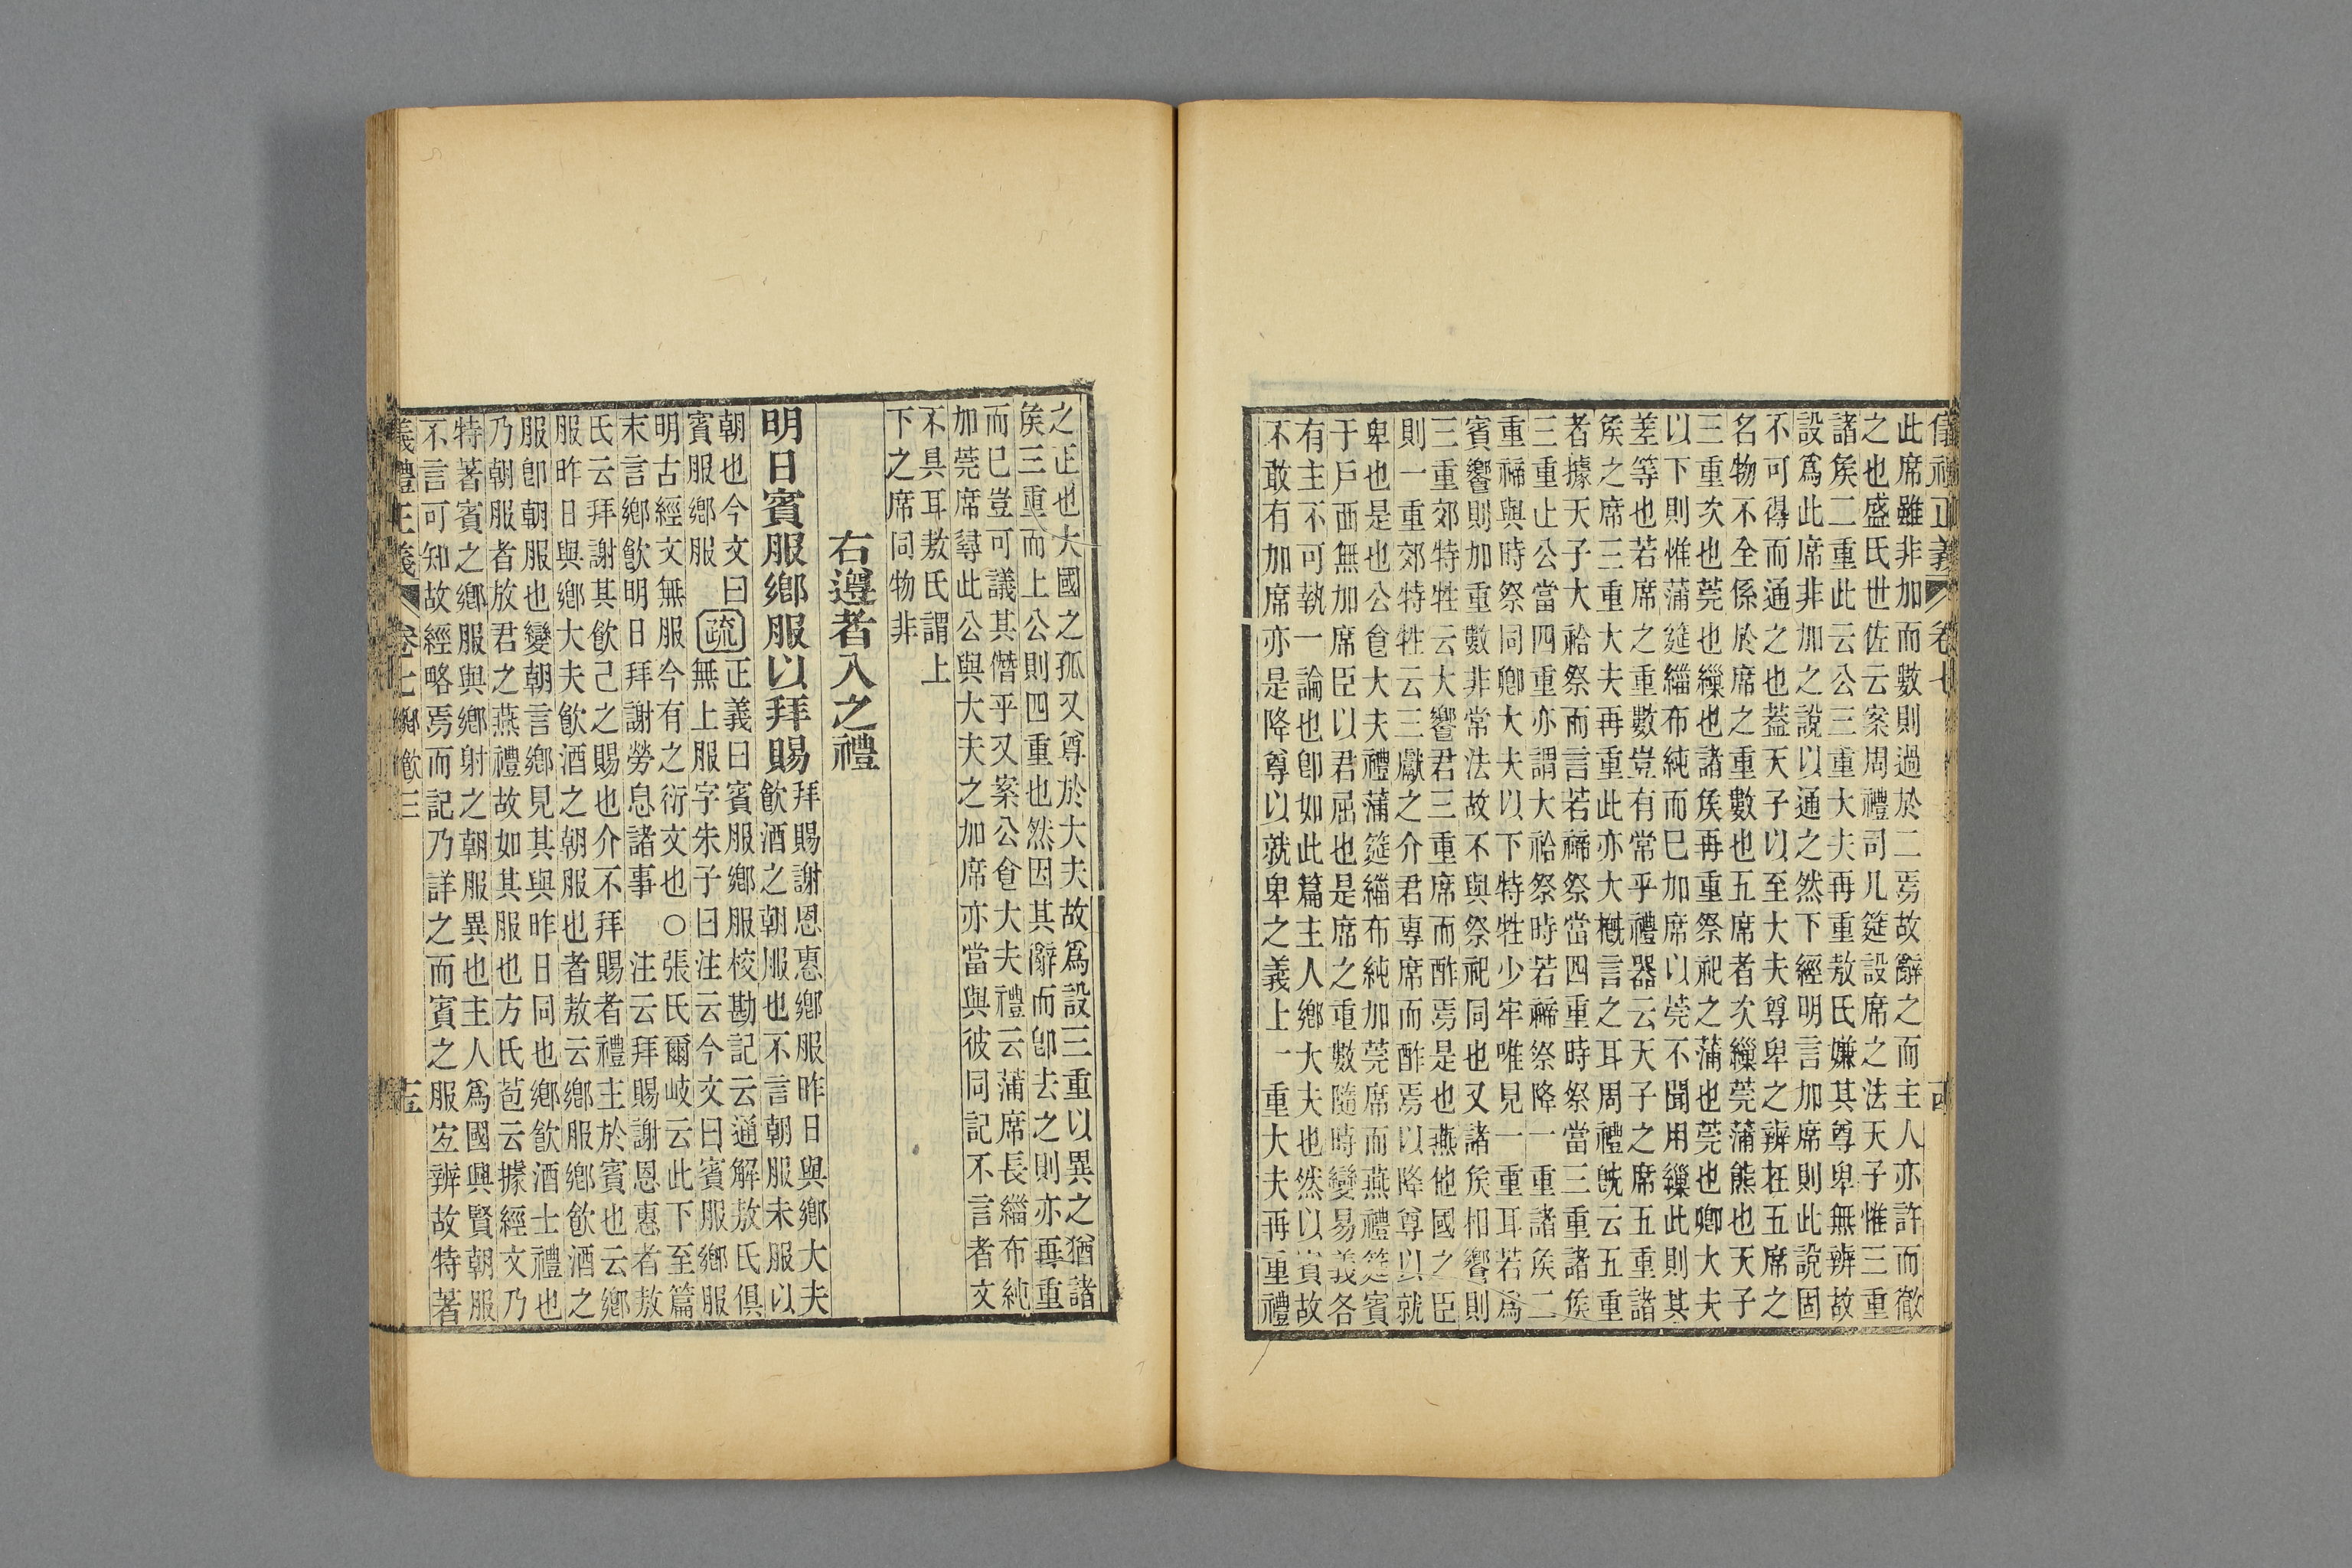 儀禮正義 卷七
此席雖非加而數則過於二焉故辭之而主人亦許而徹
之也盛氏世佐云案周禮司几筵設席之法天子惟三重
諸矦二重此云公三重大夫再重敖氏嫌其尊卑無辨故
設爲此席非加之說以通之然下經明言加席則此說固
不可得而通之也葢天子以至大夫尊卑之辨在五席之
名物不全係於席之重數也五席者次繅莞蒲熊也天子
三重次也莞也繅也諸矦再重祭祀之蒲也莞也卿大夫
以下則惟蒲筵緇布純而已加席以莞不聞用繅此則其
差等也若席之重數豈有常乎禮器云天子之席五重諸
矦之席三重大夫再重此亦大槪言之耳周禮旣云五重
者據天子大祫祭而言若禘祭當四重時祭當三重諸矦
三重止公當四重亦謂大祫祭時若禘祭降一重諸矦二
重禘與時祭同卿大夫以下特牲少牢唯見一重耳若爲
賓饗則加重數非常法故不與祭祀同也又諸矦相饗則
三重郊特牲云大饗君三重席而酢焉是也燕他國之臣
則一重郊特牲云三獻之介君專席而酢焉以降尊以就
卑也是也公食大夫禮蒲筵緇布純加莞席而燕禮筵賓
于戶西無加席臣以君屈也是席之重數隨時變易義各
有主不可執一論也卽如此篇主人鄕大夫也然以賓故
不敢有加席亦是降尊以就卑之義上一重大夫再重禮
之正也大國之孤又尊於大夫故爲設三重以異之猶諸
矦三重而上公則四重也然因其辭而卽去之則亦再重
而已豈可議其僭乎又案公食大夫禮云蒲席長緇布純
加莞席尋此公與大夫之加席亦當與彼同記不言者文
不具耳敖氏謂上
下之席同物非
右遵者入之禮
明日賓服鄕服以拜賜
拜賜謝恩惠鄕服昨日與鄕大夫
飮酒之朝服也不言朝服未服以
朝也今文曰
賓服鄕服
疏
正義曰賓服鄕服校勘記云通解敖氏俱
無上服字朱子曰注云今文曰賓服鄕服
明古經文無服今有之衍文也○張氏爾岐云此下至篇
末言鄕飮明日拜謝勞息諸事 注云拜賜謝恩惠者敖
氏云拜謝其飮己之賜也介不拜賜者禮主於賓也云鄕
服昨日與鄕大夫飮酒之朝服也者敖云鄕服鄕飮酒之
服卽朝服也變朝言鄕見其與昨日同也鄕飮酒士禮也
乃朝服者放君之燕禮故如其服也方氏苞云據經文乃
特著賓之鄕服與鄕射之朝服異也主人爲國興賢朝服
不言可知故經略焉而記乃詳之而賓之服宐辨故特著
儀禮正義 卷七鄕飮三